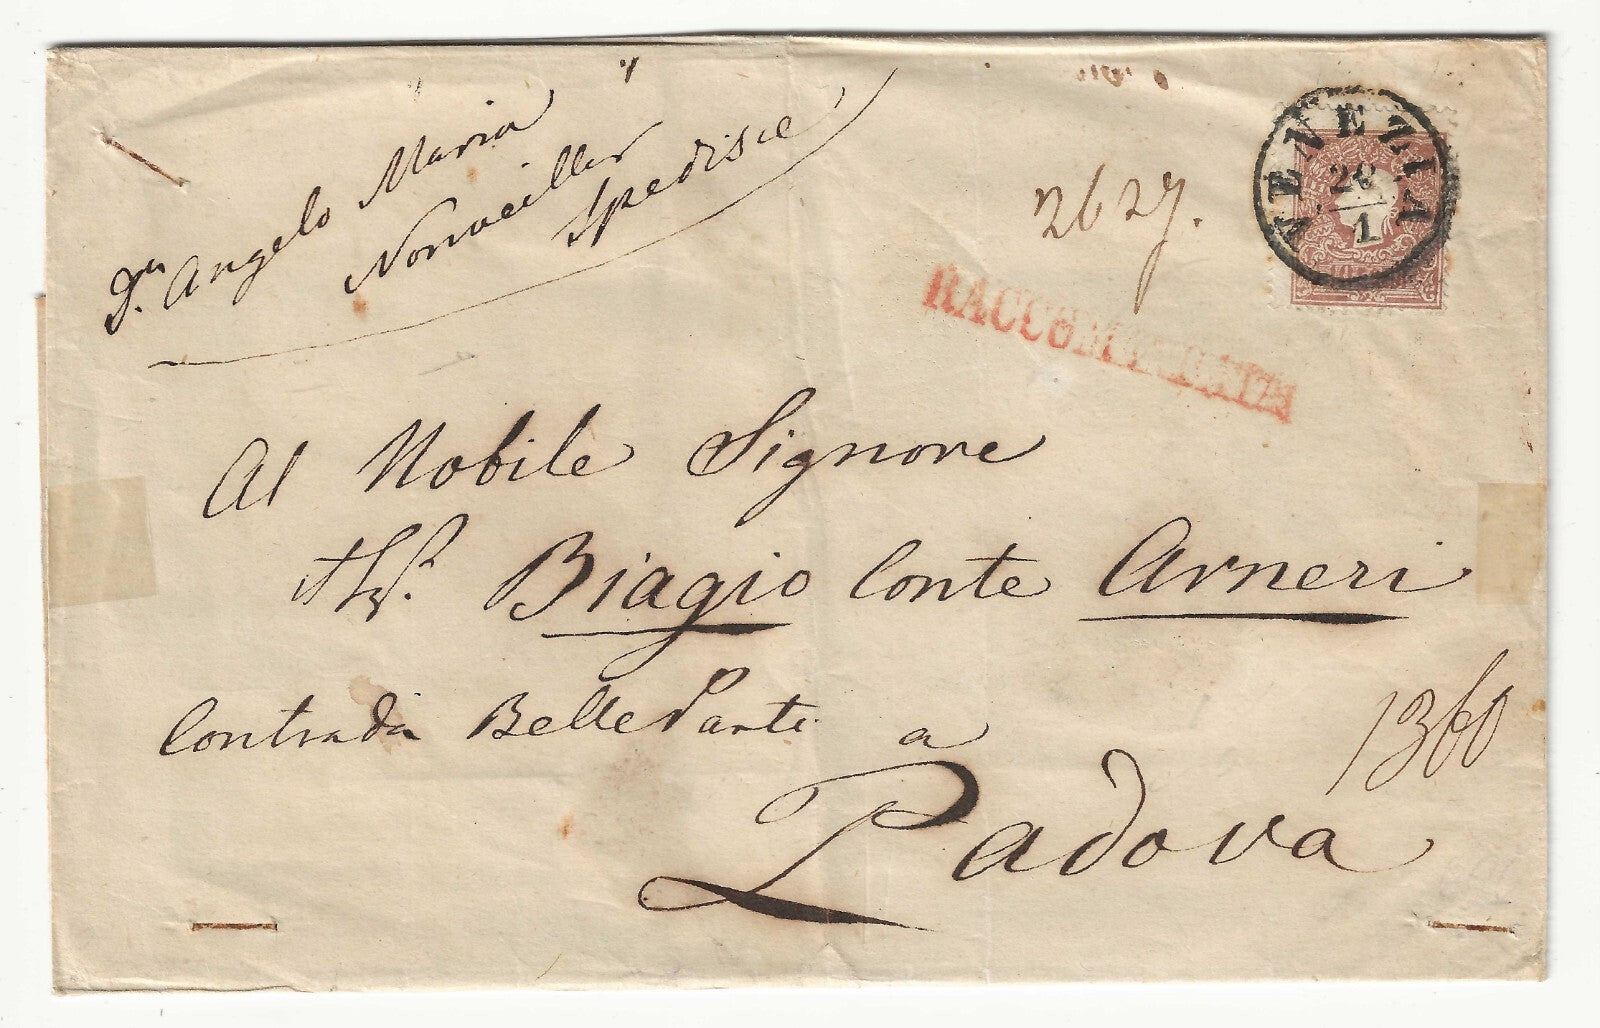 Dn. Angelo Maria
Nonveiller
Spedisce
2627.
VENEZIA
28
1
RACCOMANDATA
Al Nobile Signore
Biagio Conte Arneri
Contrada Belle Parti a
1360
Padova